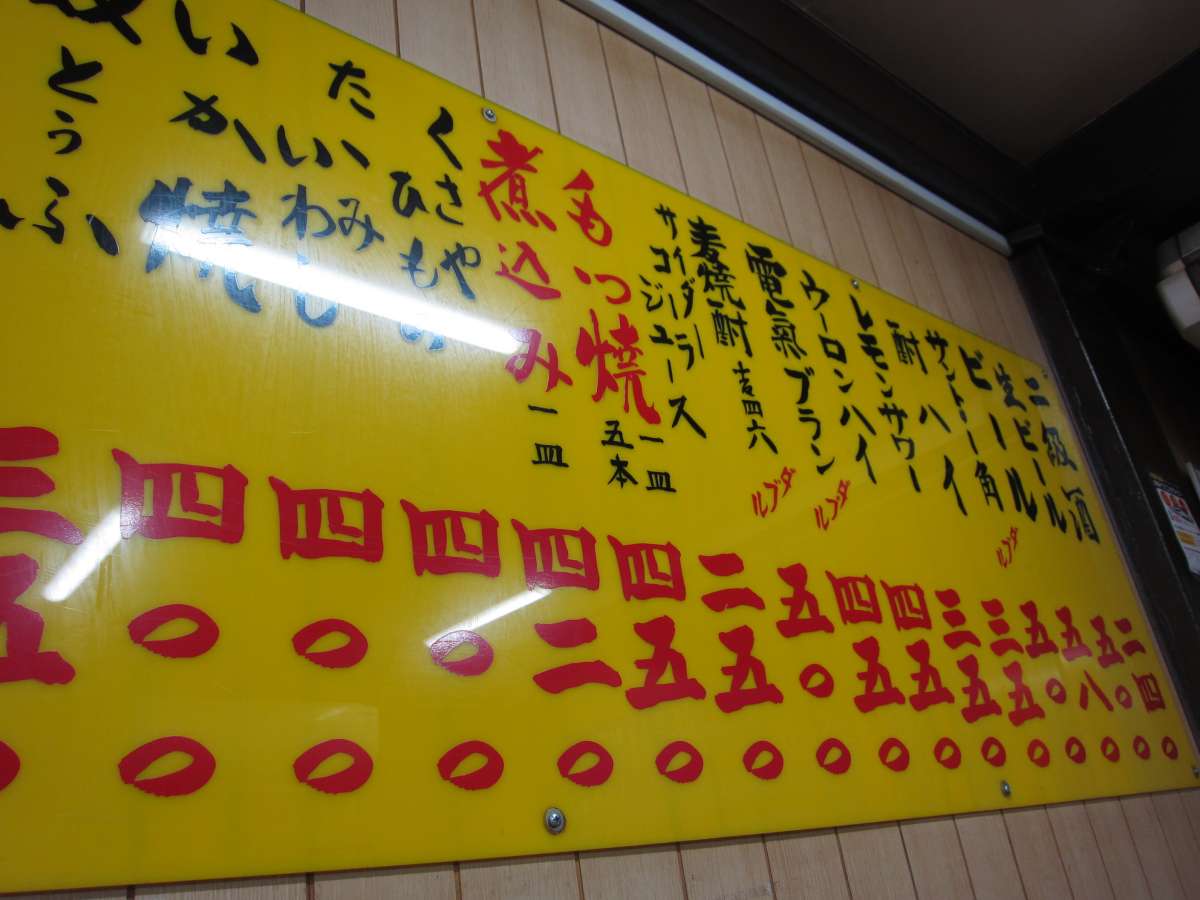 二級酒 二四〇
生ビール 五〇〇
ビール 五八〇
サントリー角 ダブル 五〇〇
酎ハイ 三五〇
レモンサワー 三五〇
ウーロンハイ ダブル 四五〇
電氣ブラン ダブル 四五〇
麦焼酎 吉四六 五〇〇
サイダー
コーラ
ジュース 二五〇
もつ焼 一皿 五本 四五〇
煮込み 一皿 四二〇
くさや
ひもの 四〇〇
たたみ
いわし 四〇〇
いか焼 四〇〇
とうふ 三五〇